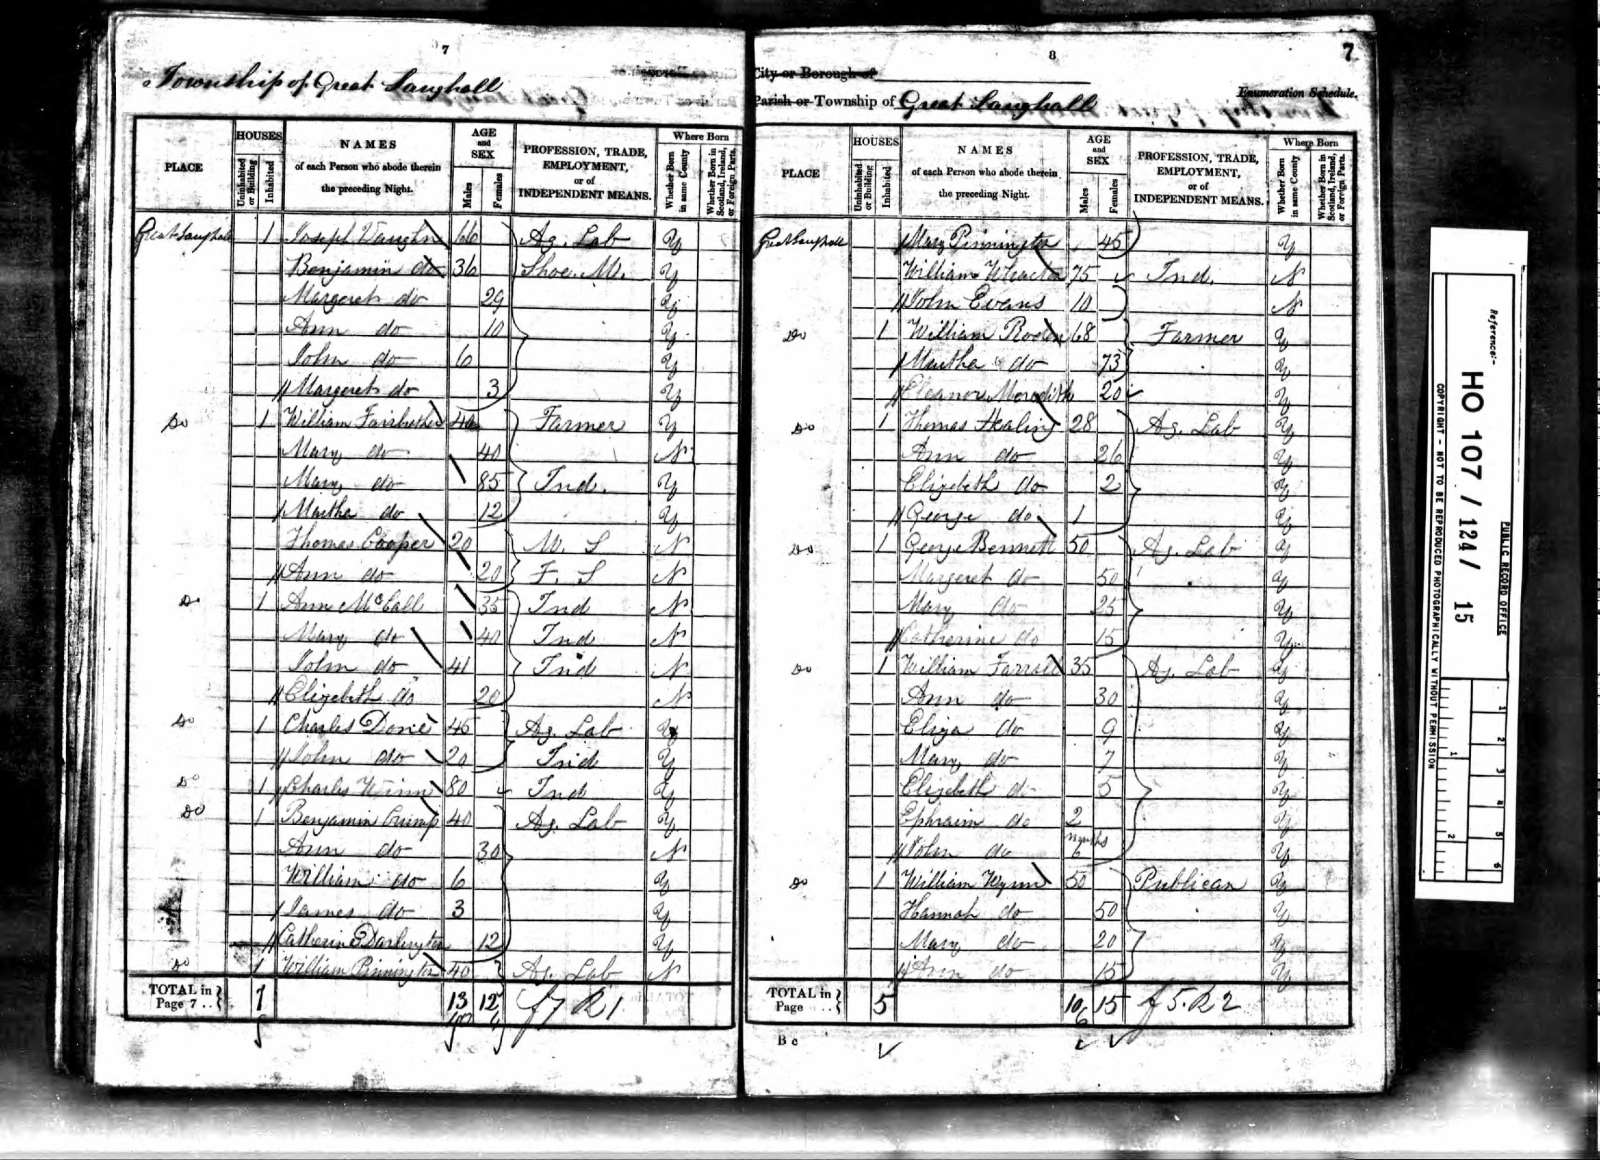 7
Township of Great Saughall
PLACE
HOUSES
Uninhabited or Building
Inhabited
NAMES
of each Person who abode therein
the preceding Night.
AGE and SEX
Males
Females
PROFESSION, TRADE,
EMPLOYMENT,
or of
INDEPENDENT MEANS.
Where Born
Whether Born in same County
Whether Born in Scotland, Ireland, or Foreign Parts.
Great Saughall 1 Joseph Vaughn 66 Ag. Lab Y
Benjamin do 36 Shoe. M. Y
Margeret do 29 Y
Ann do 10 Y
John do 6 Y
Margeret do 3 Y
Do 1 William Fairbrother 40 Farmer Y
Mary do 40 N
Mary do 85 Ind. Y
Martha do 12 Y
Thomas Cooper 20 M. S N
Ann do 20 F. S N
Do 1 Ann McCall 35 Ind N
Mary do 40 Ind N
John do 41 Ind N
Elizebeth do 20 N
Do 1 Charles 45 Ag. Lab Y
John do 20 Ind Y
Do 1 Charles Winn 80 Ind Y
Do 1 Benjamin Crump 40 Ag. Lab Y
Ann do 30 N
William do 6 Y
James do 3 Y
Catherine Darlington 12 Y
Do 1 William Pinnington 40 Ag. Lab N
TOTAL in Page 7 .. 7 13 12
8
7
City or Borough of
Parish or Township of Great Saughall
Enumeration Schedule.
PLACE
HOUSES
Uninhabited or Building
Inhabited
NAMES
of each Person who abode therein
the preceding Night.
AGE and SEX
Males
Females
PROFESSION, TRADE,
EMPLOYMENT,
or of
INDEPENDENT MEANS.
Where Born
Whether Born in same County
Whether Born in Scotland, Ireland, or Foreign Parts.
Great Saughall Mary Pinnington 45 Y
William 75 Ind. N
John Evans 10 N
Do 1 William 68 Farmer Y
Martha do 73 Y
Eleanor Meredith 20 Y
Do 1 Thomas Healing 28 Ag. Lab Y
Ann do 26 Y
Elizebeth do 2 Y
George do 1 Y
Do 1 George Bennett 50 Ag. Lab Y
Margeret do 50 Y
Mary do 25 Y
Catherine do 15 Y
Do 1 William 35 Ag. Lab Y
Ann do 30 Y
Eliza do 9 Y
Mary do 7 Y
Elizebeth do 5 Y
Ephraim do 2 Y
John do months 6 Y
Do 1 William Wynn 50 Publican Y
Hannah do 50 Y
Mary do 20 Y
Ann do 15 Y
TOTAL in Page .. 5 10 15
B c
Reference:-
HO 107 / 124 / 15
PUBLIC RECORD OFFICE
COPYRIGHT - NOT TO BE REPRODUCED PHOTOGRAPHICALLY WITHOUT PERMISSION
1 2 3 4 5 6
1 2